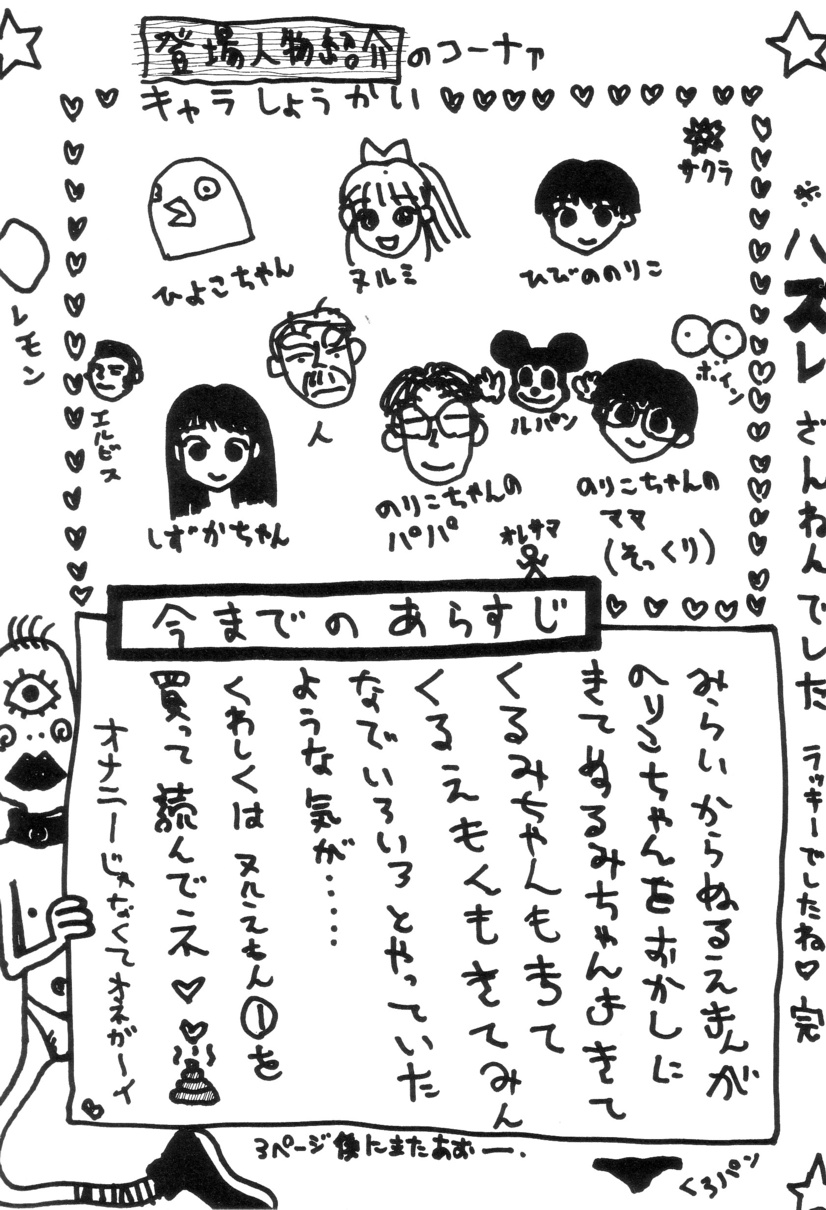 登場人物紹介のコーナァ
キャラしょうかい
サクラ
ひよこちゃん
ヌルミ
ひびののりこ
レモン
エルビス
人
ルパン
ボイン
しずかちゃん
のりこちゃんの
パパ
のりこちゃんの
ママ
(そっくり)
オレサマ
※ハズレ ざんねんでした ラッキーでしたね♡完
今までのあらすじ
みらいからぬるえもんが
のりこちゃんをおかしに
きてぬるみちゃんもきて
くるみちゃんもきて
くるえもくもきてみん
なでいろいろとやっていた
ような気が・・・・
くわしくはヌルえもん①を
買って読んでネ♡
オナニーじゃなくてオネガーイ
3ページ後にまたあおー.
くろパン